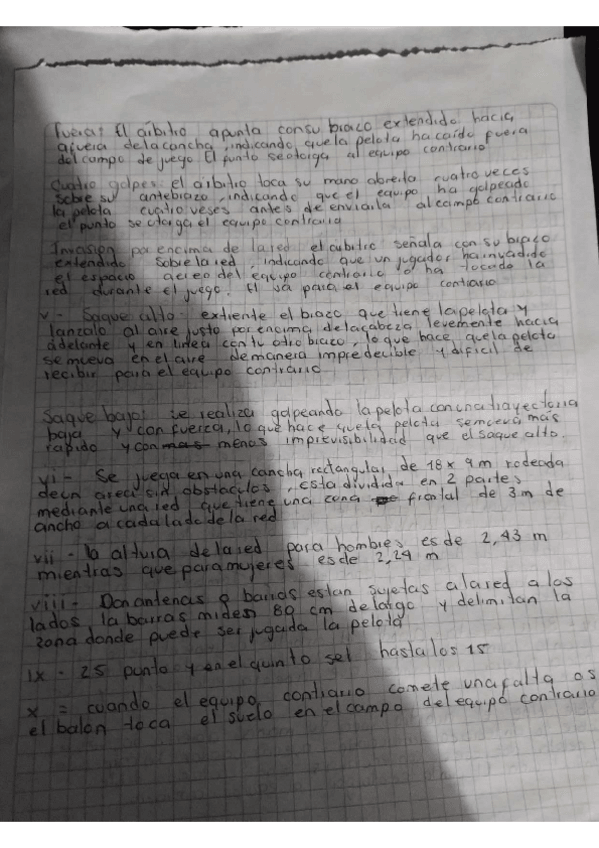 Fuera: El árbitro apunta con su brazo extendido hacia
afuera de la cancha, indicando que la pelota ha caído fuera
del campo de juego El punto se otorga al equipo contrario
Cuatro golpes: el árbitro toca su mano abierta cuatro veces
sobre su antebrazo, indicando que el equipo ha golpeado
la pelota cuatro veses antes de enviarla al campo contrario
el punto se otorga el equipo contrario
Invasion por encima de la red el arbitro señala con su brazo
extendido sobre la red, indicando que un jugador ha invadido
el espacio aereo del equipo contrario o ha tocado la
red durante el juego. El va para el equipo contrario
v - Saque alto: extiente el brazo que tiene la pelota y
lanzalo al aire justo por encima de la cabeza levemente hacia
adelante y en linea con tu otro brazo, lo que hace que la pelota
se mueva en el aire de manera impredecible y dificil de
recibir para el equipo contrario.
Saque bajo: se realiza golpeando la pelota con una trayectoria
baja y con fuerza, lo que hace que la pelota se mueva más
rapido y con mas menos imprevisibilidad que el saque alto.
vi - Se juega en una cancha rectangular de 18 x 9 m rodeada
de un area sin obstaculos, esta dividida en 2 partes
mediante una red que tiene una zona frontal de 3 m de
ancho a cada lado de la red
vii - la altura de la red para hombres es de 2,43 m
mientras que para mujeres es de 2,24 m
viii - Don antenas o barras estan sujetas a la red a los
lados, la barras miden 80 cm de largo y delimitan la
zona donde puede ser jugada la pelota
ix - 25 punto y en el quinto set hasta los 15
x = cuando el equipo contrario comete una falta os
el balon toca el suelo en el campo del equipo contrario